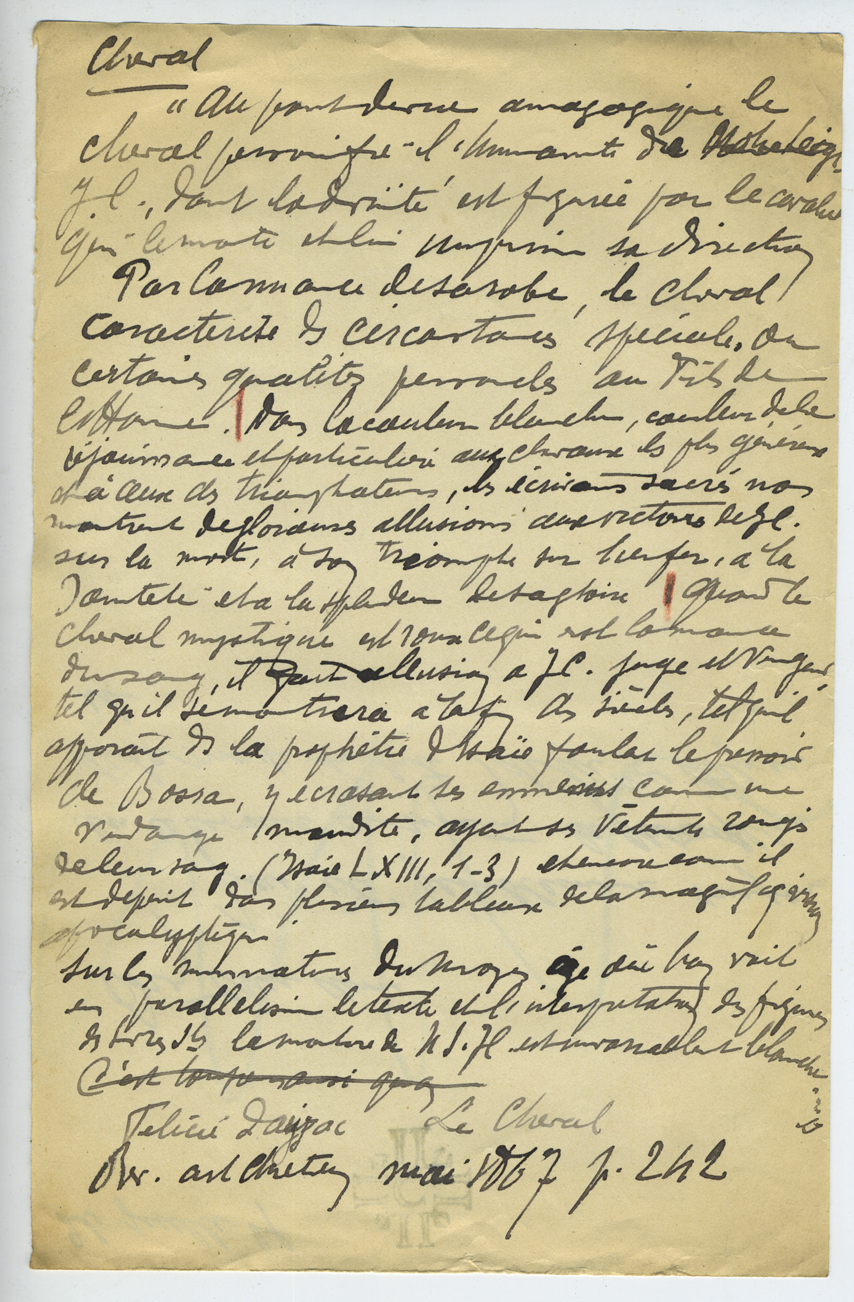 Cheval
"Au point de vue anagogique le
cheval personnifie l'humanité de
J. C., dont la divinité est figurée par le cavalier
qui le monte et lui imprime sa direction
Par la nuance de sa robe, le cheval
caractérise des circonstances spéciales, ou
certaines qualités personnelles au Fils de
l'Homme. Dans la couleur blanche, couleur de la
réjouissance et particulière aux chevaux les plus généreux
et à ceux des triomphateurs, les écrivains sacrés nous
montrent de glorieuses allusions aux victoires de J C.
sur la mort, à son triomphe sur l'enfer, à la
sainteté et à la splendeur de sa gloire Quand le
cheval mystique est roux ce qui est la nuance
du sang, il fait allusion à J C. juge et vengeur,
tel qu'il se montrera à la fin des siècles, tel qu'il
apparaît ds la prophétie d'Isaïe foulant le pressoir
de Bosra, y écrasant ses ennemis comme une
vendange maudite, ayant ses vêtements rougis
de leur sang. (Isaïe LXIII, 1-3) et encore comme il
est dépeint dans plusieurs tableaux de la magnifique vision
apocalyptique.
Sur les miniatures du Moyen âge où l'on voit
en parallélisme le texte et l'interprétation des figures
des livres Sts la monture de N S. J C. est invariablement blanche
C'est
Félicie d'Ayzac Le Cheval
Rev. art chrétien mai 1867 p. 242